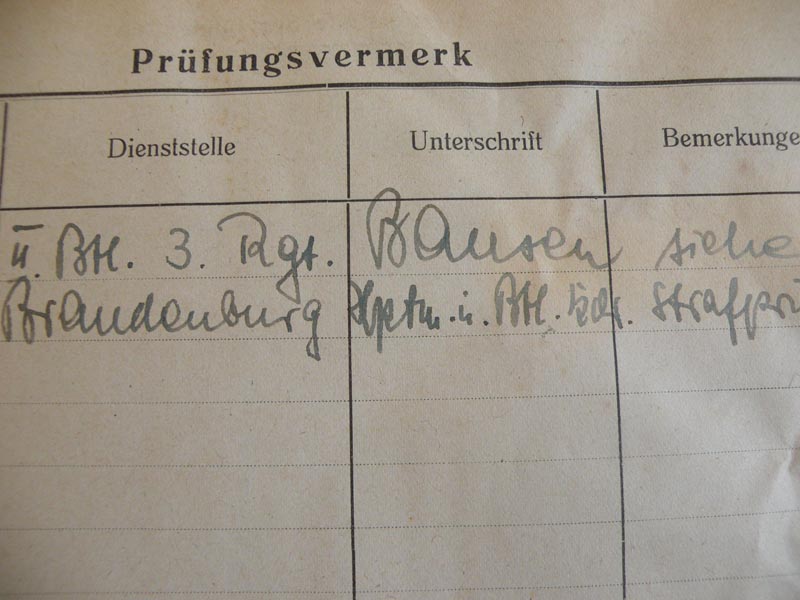 Prüfungsvermerk
Dienststelle Unterschrift Bemerkunge
II. Btl. 3. Rgt. Bansen siehe
Brandenburg Hptm. u. Btl. Kdr. Strafprü